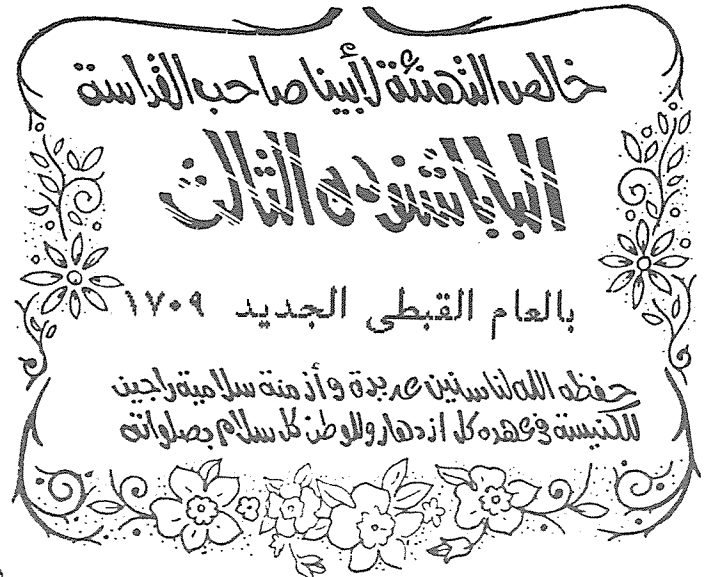 خالص التهنئة لأبينا صاحب القداسة
البابا شنوده الثالث
بالعام القبطى الجديد ١٧٠٩
حفظه الله لنا سنين عديدة وأزمنة سلامية راجين
للكنيسة فى عهده كل ازدهار وللوطن كل سلام بصلواته